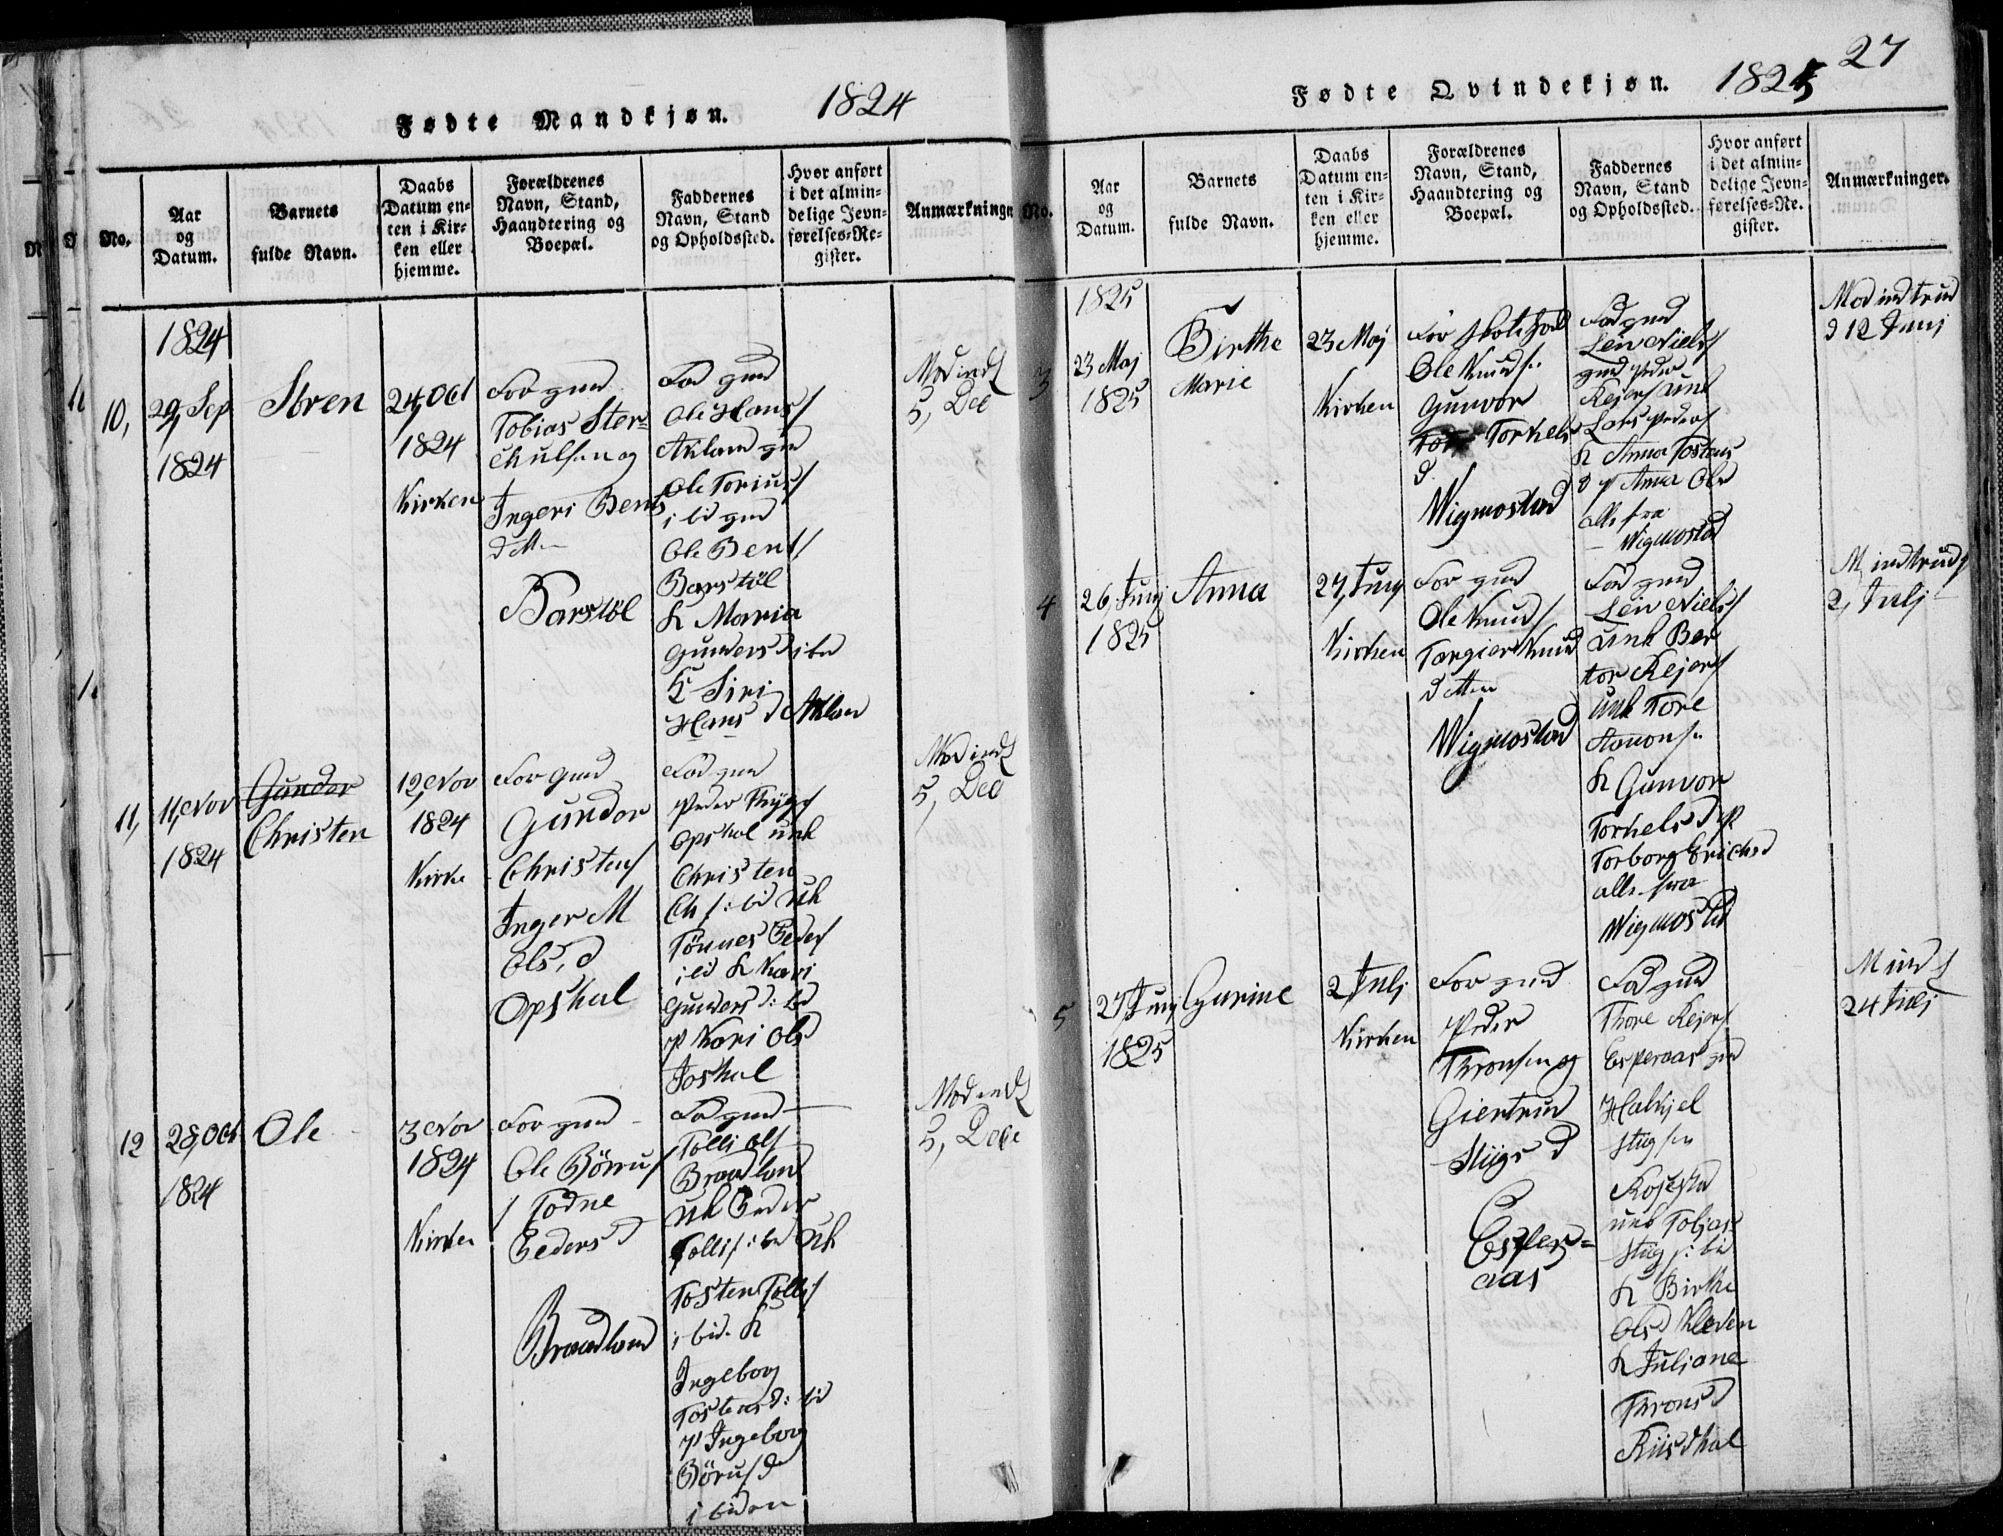 Fødte Mandkjøn. 1824
No.
Aar
og
Datum.
Barnets
fulde Navn.
Daabs
Datum en-
ten i Kir-
ken eller
hjemme.
Forældrenes
Navn, Stand,
Haandtering og
Boepæl.
Faddernes
Navn, Stand
og Opholdssted.
Hvor anført
i det almin-
delige Jevn-
førelses-Re-
gister.
Anmærkninge
1824
10,
29, Sep
1824
Søren
24, Oct
1824
Kirken
For gmd
Tobias Ster-
Ingeri Bents
dtter
Barstøl
Fad gmd
Ole Hans
Aklan gm
Ole Torius
i bid gmd
Ole Bent
Barstøl
K Maria
Gunders d ibd
K Siri
Hans d Aklan
Mod ind
5, Dec
11,
11, Nov
1824
Gundor
Christen
12, Nov
1824
Kirke
For gmd
Gundor
Christens
Inger M
Ols, d
Opshal
Fad gmd
Peder
Opshal unk
Christen
Tønnes Peders
i bid K Kari
Gunders d: bd
p Kari Ols
Joshal
Mod ind
5, Dec
12
28, Oct
1824
Ole
3 Nov
1824
Kirken
For gmd
Ole Børus
Todne
Peders d
Braadland
Fad gmd
Tolli Ols
Braadland
uk Peder
Tollis: bd uk
Tosten Tollis
i bid. K
Ingeborg
Tostens d: bd
p Ingeborg
Børus d
i bidem
Mod ind
5, Dece
Fødte Qvindekjøn. 1825 27
No.
Aar
og
Datum.
Barnets
fulde Navn.
Daabs
Datum en-
ten i Kir-
ken eller
hjemme.
Forældrenes
Navn, Stand,
Haandtering og
Boepæl.
Faddernes
Navn, Stand
og Opholdssted.
Hvor anført
i det almin-
delige Jevn-
førelses-Re-
gister.
Anmærkninger.
1825
3
23 Maj
1825
Birthe
Marie
23 Maj
Kirken
For
Ole Knuds:
Gunvor
Torkels
d
Wigmostad
Fad gmd
Lars Peders
K Anna Tostens
d p Anna Ols
alle fra
Wigmostad
Mod indtrud
d 12 Junj
4
26, Junj
1825
Anna
27, Junj
Kirken
For gmd
Ole Knuds
Targier Knud
dtter
Wigmostad
Fad gmd
unk Ber
tor Rejers
unk Tore
K Gunvor
Torkels d p
Torborg Erichsd
alle fra
Wigmostad
M indtrud
2, Julj
5
27, Junj
1825
Gurine
2 Julj
Kirken
For gmd
Peder
Thronsen og
Giertrud
Stiigs d
Esper-
aas
Fad gmd
Thore Rejers
Esperaas gm
Halkjel
Stiigsen
Rosestad
unk Tobjas
Stiigs: bd
K Birthe
Olsd Kleven
K Juljane
Throns d
Riisdhal
M ind
24 Julj